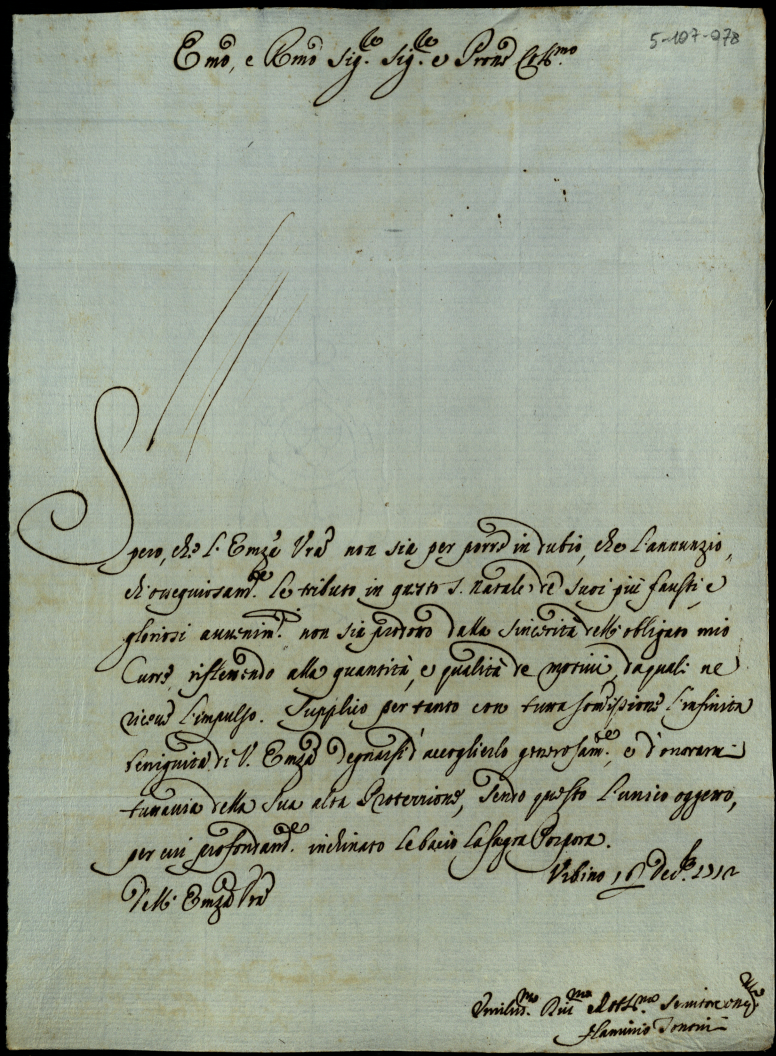 5-107-078
Emo, e Rmo Sig.re Sig.re e Prone Col.mo
Spero, che l'Emza Vra non sia per porre in dubio, che l'annunzio,
che ossequiosam.te le tributo in questo S. Natale de suoi più fausti, e
gloriosi auuenim.ti non sia prodotto dalla sincerità dell'obligato mio
Cuore, riflettendo alla quantità, e qualità de motiui, da quali ne
riceue l'impulso. Supplico per tanto con tutta somissione l'infinita
benignità di V. Emza degnarsi d'accoglierlo generosam.te, e d'onorarmi
tuttauia della Sua alta Protettione, sendo questo l'unico oggetto,
per cui profondam.te inchinato le bacio la Sagra Porpora.
Vrbino 16 Dec.bre
Dell'Emza Vra
Vmiliss.mo Diu.mo Obbl.mo Seruitore
Flaminio